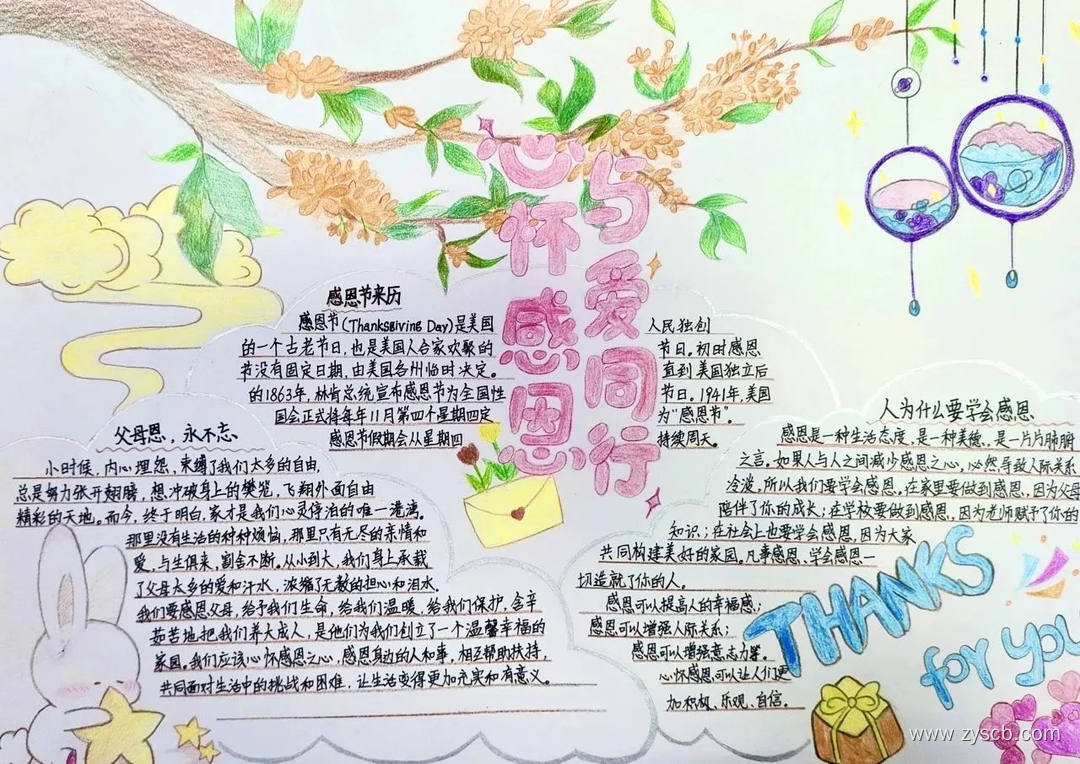 心怀感恩
与爱同行
感恩节来历
感恩节(Thanksgiving Day)是美国人民独创
的一个古老节日,也是美国人合家欢聚的节日。初时感恩
节没有固定日期,由美国各州临时决定。直到美国独立后
的1863年,林肯总统宣布感恩节为全国性节日。1941年,美国
国会正式将每年11月第四个星期四定为“感恩节”。
感恩节假期会从星期四持续周天。
父母恩,永不忘
小时候,内心埋怨,束缚了我们太多的自由,
总是努力张开翅膀,想冲破身上的樊笼,飞翔外面自由
精彩的天地。而今,终于明白,家才是我们心灵停泊的唯一港湾。
那里没有生活的种种烦恼,那里只有无尽的亲情和
爱,与生俱来,割舍不断。从小到大,我们身上承载
了父母太多的爱和汗水,浓缩了无数的担心和泪水。
我们要感恩父母,给予我们生命,给我们温暖,给我们保护,含辛
茹苦地把我们养大成人,是他们为我们创立了一个温馨幸福的
家园。我们应该心怀感恩之心,感恩身边的人和事,相互帮助扶持,
共同面对生活中的挑战和困难,让生活变得更加充实和有意义。
人为什么要学会感恩
感恩是一种生活态度,是一种美德,是一片片肺腑
之言。如果人与人之间减少感恩之心,必然导致人际关系
冷淡,所以我们要学会感恩,在家里要做到感恩,因为父母
陪伴了你的成长;在学校要做到感恩,因为老师赋予了你的
知识;在社会上也要学会感恩,因为大家
共同构建美好的家园。凡事感恩、学会感恩一
切造就了你的人。
感恩可以提高人的幸福感;
感恩可以增强人际关系;
感恩可以增强意志力等。
心怀感恩可以让人们更
加积极、乐观、自信。
THANKS
for you
www.zyscb.com